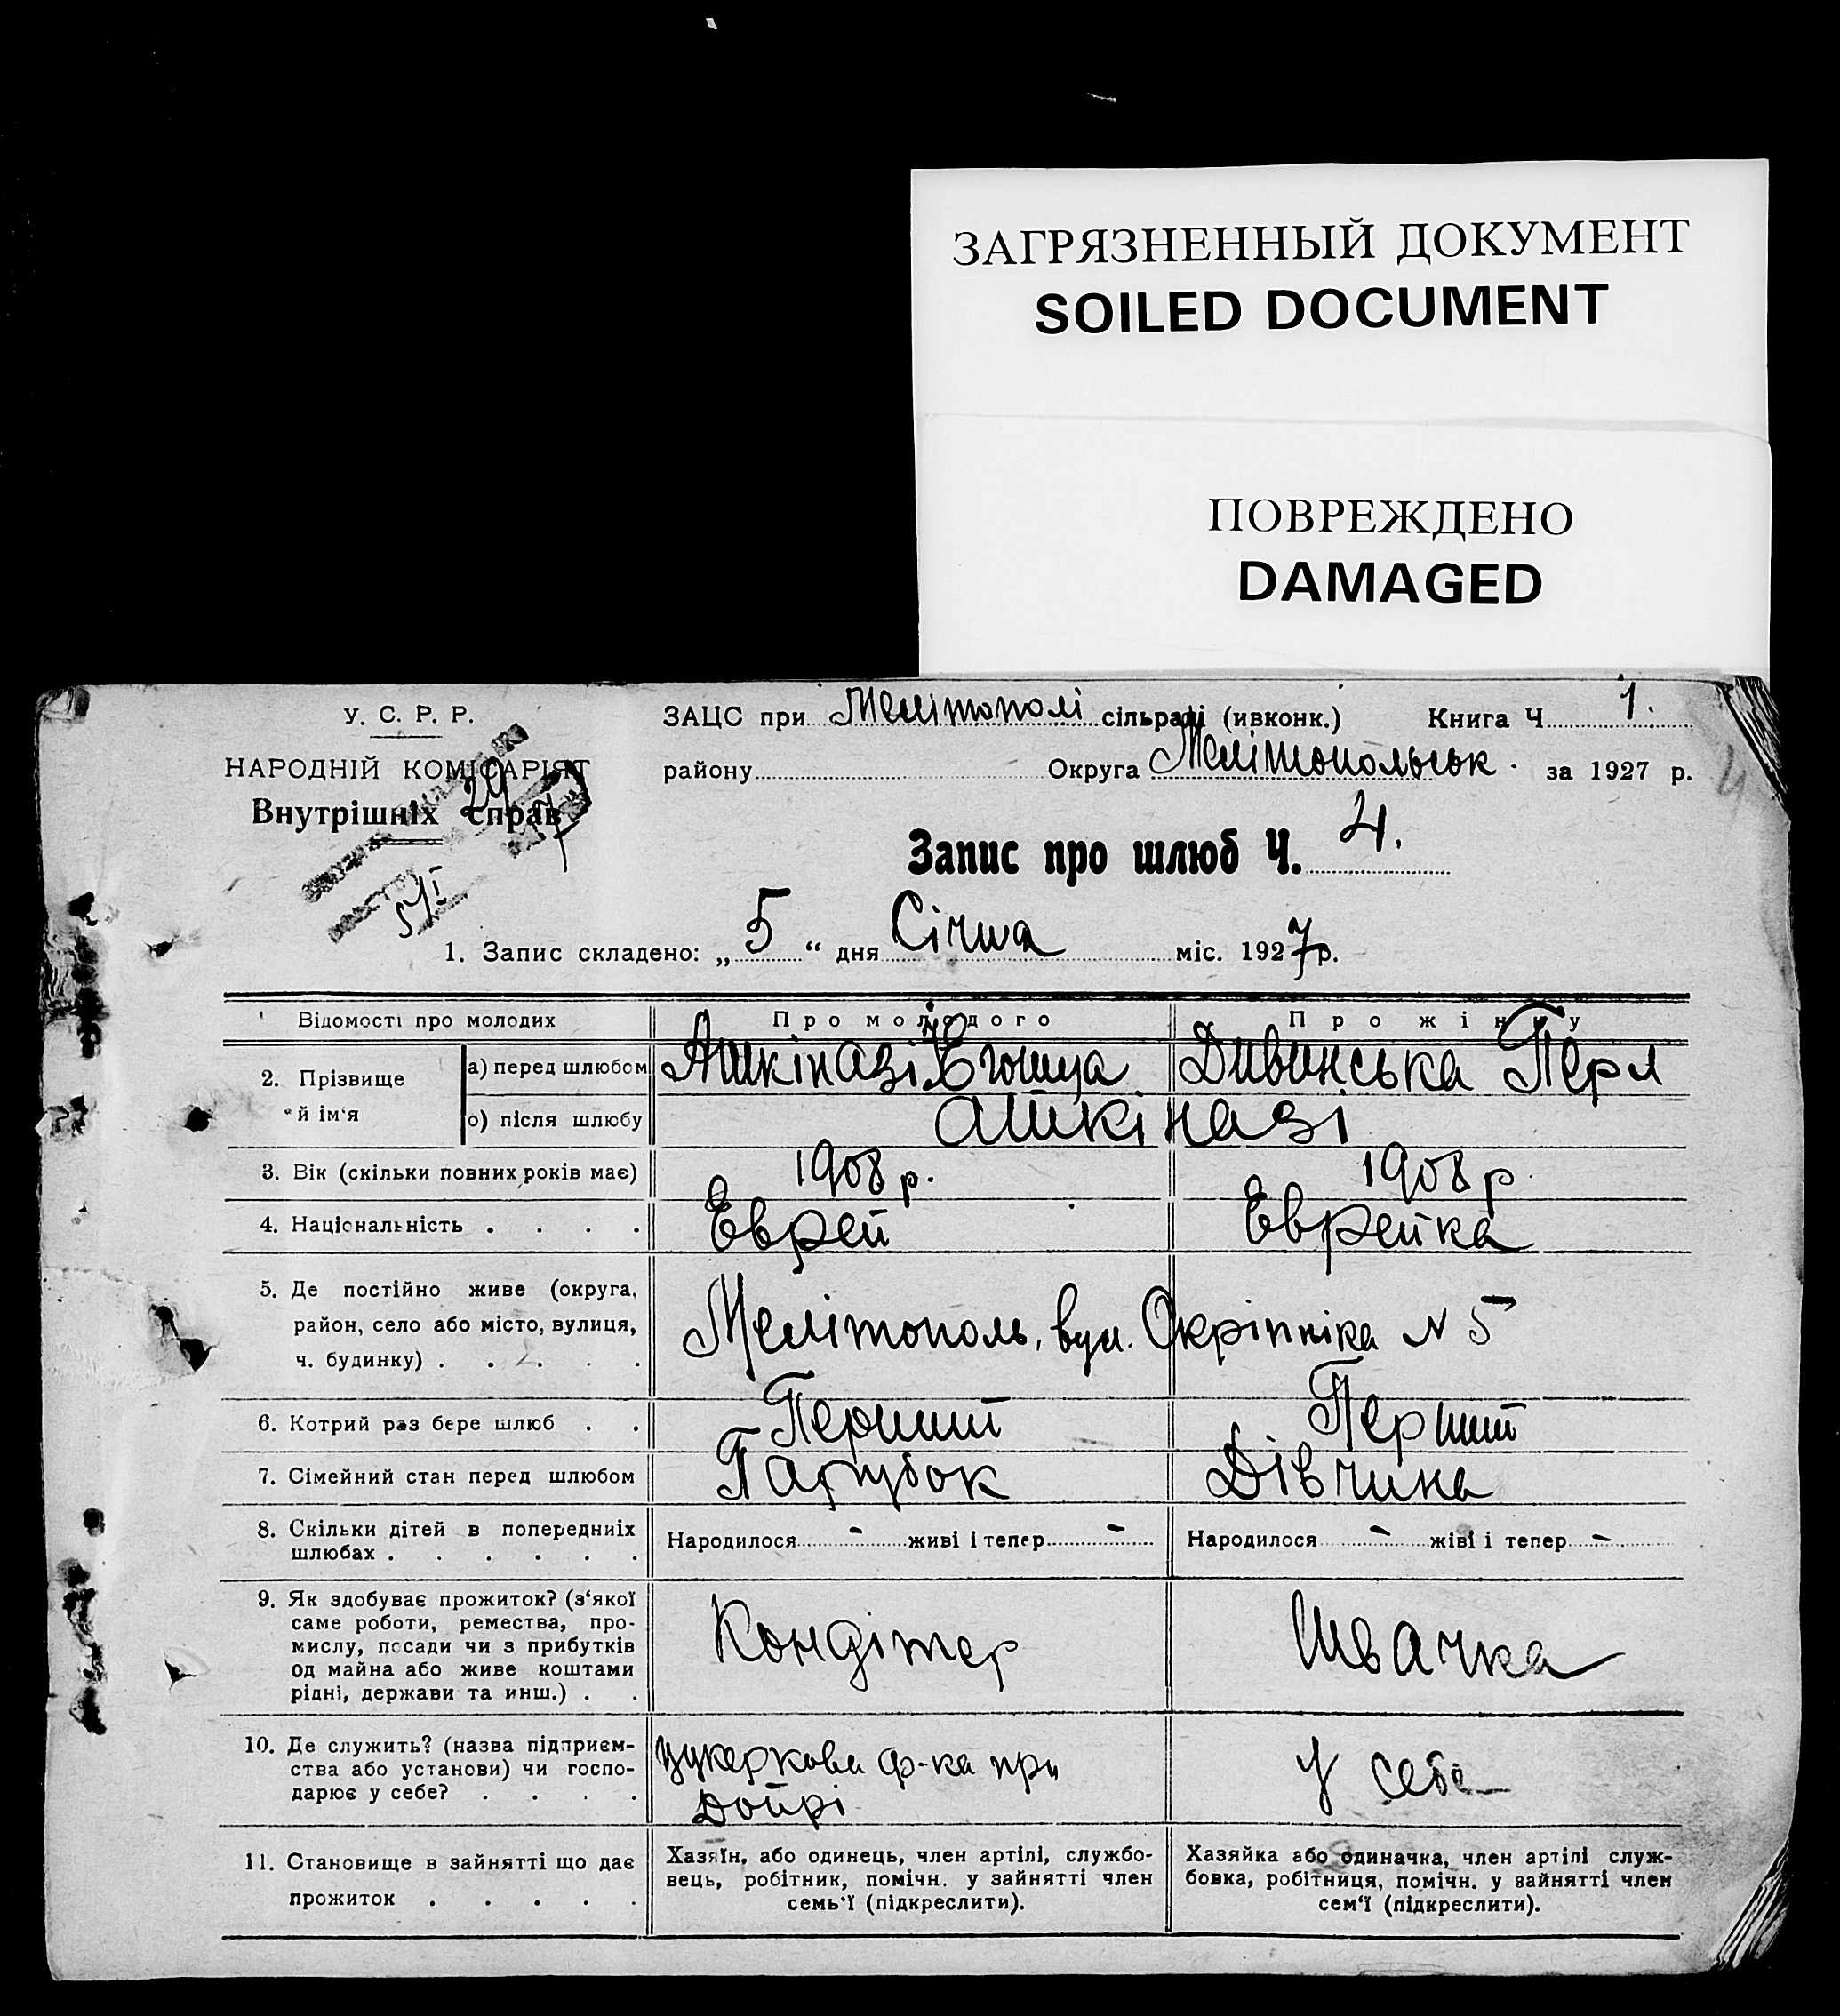 ЗАГРЯЗНЕННЫЙ ДОКУМЕНТ
SOILED DOCUMENT
ПОВРЕЖДЕНО
DAMAGED
У. С. Р. Р.
НАРОДНІЙ КОМІСАРІЯТ
Внутрішніх справ
29
5/I
ЗАЦС при Мелітополі сільраді (ивконк.) Книга Ч 1.
району Округа Мелітопольськ. за 1927 р.
4
Запис про шлюб Ч. 4.
1. Запис складено: „ 5 “ дня Січня міс. 1927 р.
Відомості про молодих Про молодого Про жінку
2. Прізвище й ім‘я а) перед шлюбом Ашкіназі Дивинська Перл
о) після шлюбу Ашкіназі
3. Вік (скільки повних років має) 1908 р. 1908 р.
4. Національність . . . . Еврей Еврейка
5. Де постійно живе (округа,
район, село або місто, вулиця,
ч. будинку) . . . . .
Мелітополь, вул. Скріпніка N 5
6. Котрий раз бере шлюб . . Перший Перший
7. Сімейний стан перед шлюбом Парубок Дівчина
8. Скільки дітей в попередниіх
шлюбах . . . . . .
Народилося - живі і тепер - Народилося - жіві і тепер -
9. Як здобуває прожиток? (з‘якої
саме роботи, ремества, про-
мислу, посади чи з прибутків
од майна або живе коштами
рідні, держави та инш.) . .
Кондітер Швачка
10. Де служить? (назва підприєм-
ства або установи) чи госпо-
дарює у себе? . . . .
Цукеркова ф-ка при
Допрі
У себе
11. Становище в зайнятті що дає
прожиток . . . . .
Хазяїн, або одинець, член артілі, службо-
вець, робітник, помічн. у зайнятті член
семь‘ї (підкреслити).
Хазяйка або одиначка, член артілі служ-
бовка, робітниця, помічн. у зайнятті член
сем‘ї (підкреслити).